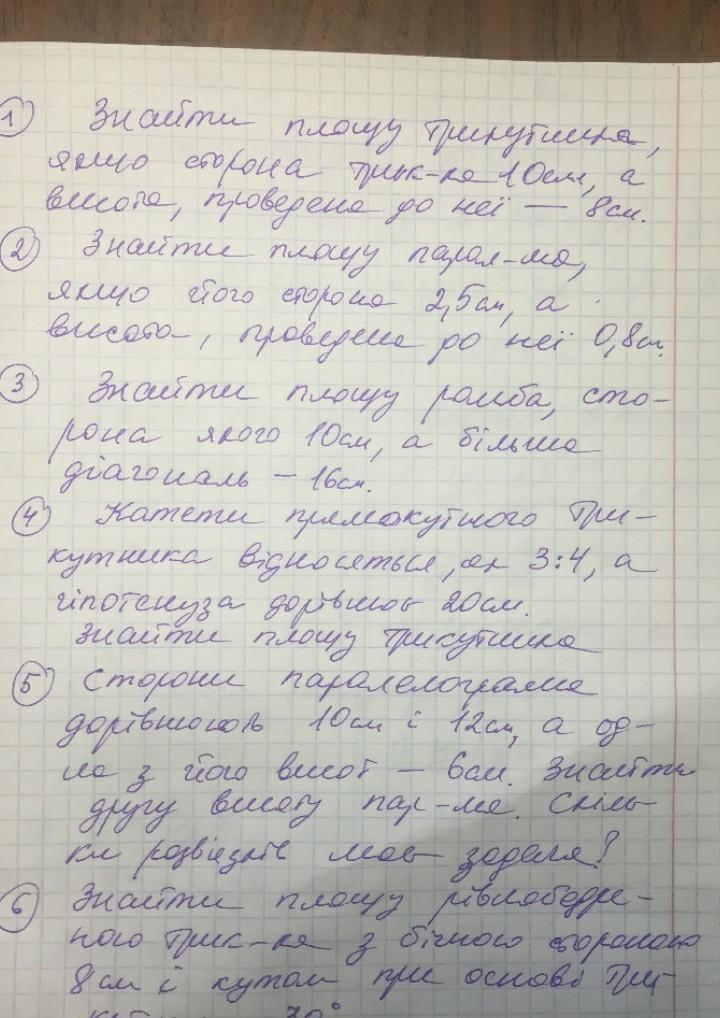 1 Знайти площу трикутника,
якщо сторона трик-ка 10см, а
висота, проведена до неї — 8см.
2 Знайти площу парал-ма,
якщо його сторона 2,5см, а
висота, проведена до неї 0,8см.
3 Знайти площу ромба, сто-
рона якого 10см, а більша
діагональ — 16см.
4 Катети прямокутного три-
кутника відносяться, як 3:4, а
гіпотенуза дорівнює 20см.
Знайти площу трикутника
5 Сторони паралелограма
дорівнюють 10см і 12см, а од-
на з його висот — 6см. Знайти
другу висоту пар-ма. Скіль-
ки розв'язків має задача?
6 Знайти площу рівнобедре-
ного трик-ка з бічною стороною
8см і кутом при основі три-
30°